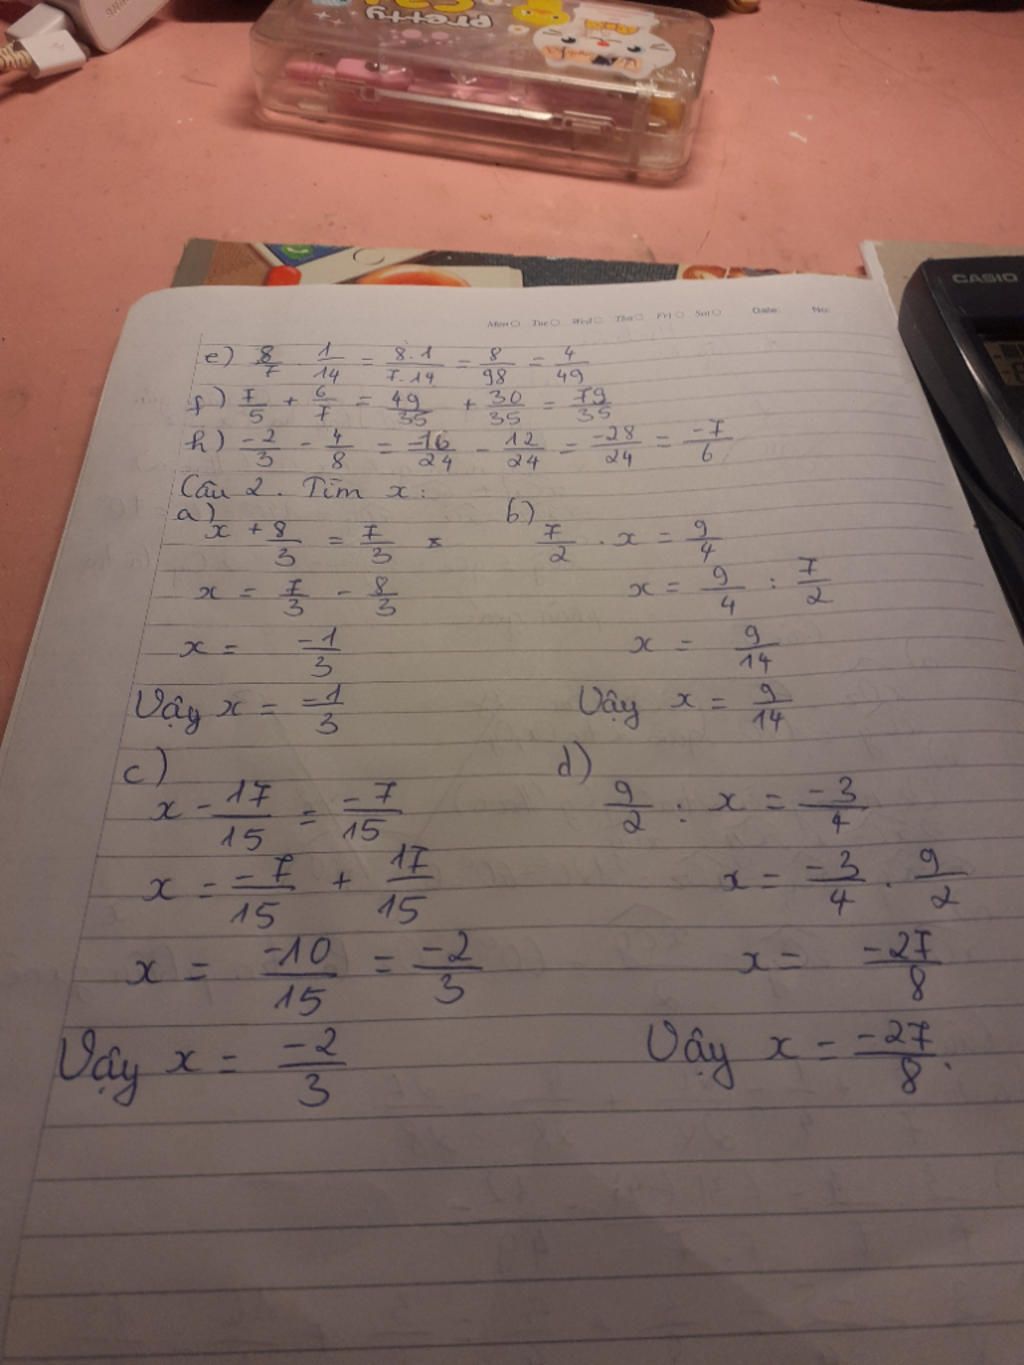 pretty
CASIO
Mon Tue Wed Thu Fri Sat Date: No:
e) 8/7 1/14 = 8.1/7.14 = 8/98 = 4/49
f) 7/5 + 6/7 = 49/35 + 30/35 = 79/35
h) -2/3 - 4/8 = -16/24 - 12/24 = -28/24 = -7/6
Câu 2. Tìm x:
a) x + 8/3 = 7/3
x = 7/3 - 8/3
x = -1/3
Vậy x = -1/3
b) 7/2 . x = 9/4
x = 9/4 : 7/2
x = 9/14
Vậy x = 9/14
c) x - 17/15 = -7/15
x = -7/15 + 17/15
x = -10/15 = -2/3
Vậy x = -2/3
d) 9/2 : x = -3/4
x = -3/4 . 9/2
x = -27/8
Vậy x = -27/8.